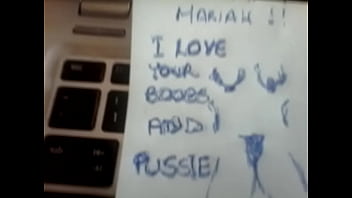 MARIAH !!
I LOVE
YOUR
BOOBS,
AND
PUSSIE!